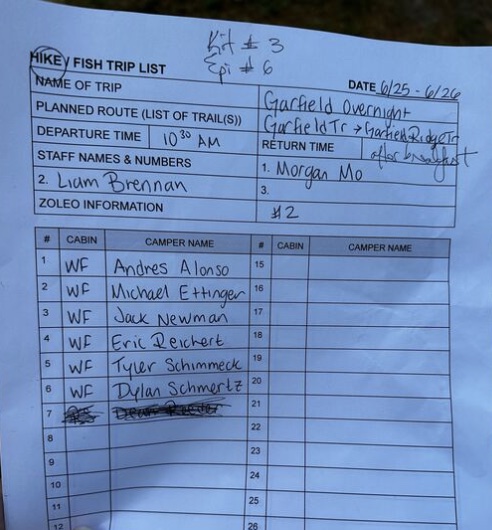 Kit # 3
Epi # 6
HIKE / FISH TRIP LIST
DATE 6/25 - 6/26
NAME OF TRIP Garfield Overnight
PLANNED ROUTE (LIST OF TRAIL(S)) Garfield Tr → Garfield Ridge Tr
DEPARTURE TIME 10 30 AM RETURN TIME after breakfast
STAFF NAMES & NUMBERS 1. Morgan Mo
2. Liam Brennan 3.
ZOLEO INFORMATION #2
# CABIN CAMPER NAME # CABIN CAMPER NAME
1 WF Andres Alonso 15
2 WF Michael Ettinger 16
3 WF Jack Newman 17
4 WF Eric Reichert 18
5 WF Tyler Schimmeck 19
6 WF Dylan Schmertz 20
7 21
8 22
9 23
10 24
11 25
12 26